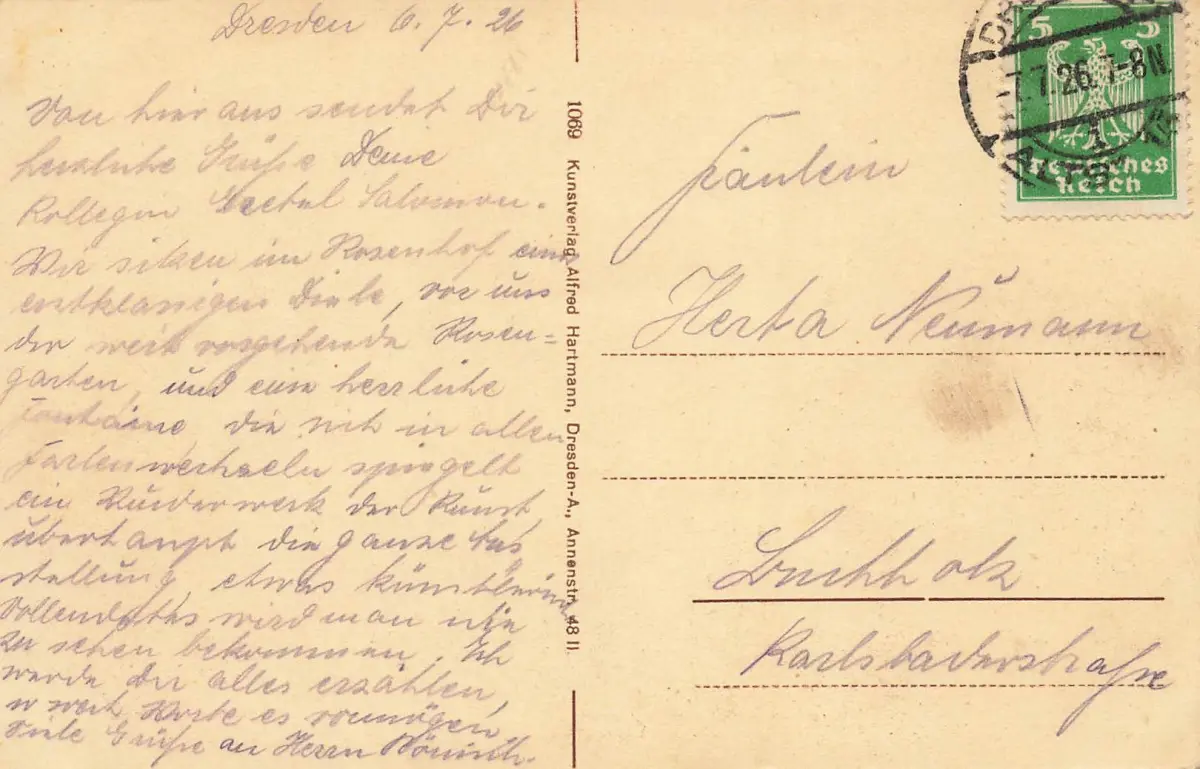 Dresden 6.7.26
Von hier aus sendet Dir
herzliche Grüße Deine
Kollegin Salomon.
Wir sitzen im Rosenhof einer
erstklassigen Diele, vor uns
der weit Rosen=
garten, und eine herrliche
Fontaine, die sich in allen
Farben wechseln spiegelt
ein Wunderwerk der Kunst,
überhaupt die ganze Aus
stellung, etwas künstlerisch
Vollendetes wird man nie
zu sehen bekommen. Ich
werde Dir alles erzählen,
so weit Worte es vermögen
Viele Grüße an Herrn
1069 Kunstverlag Alfred Hartmann, Dresden-A., Annenstr. 48 II.
5 5
Deutsches
Reich
-7.7.26.7-8N
ALTST.
Fräulein
Herta Neumann
Buchholz
Karlsbaderstraße